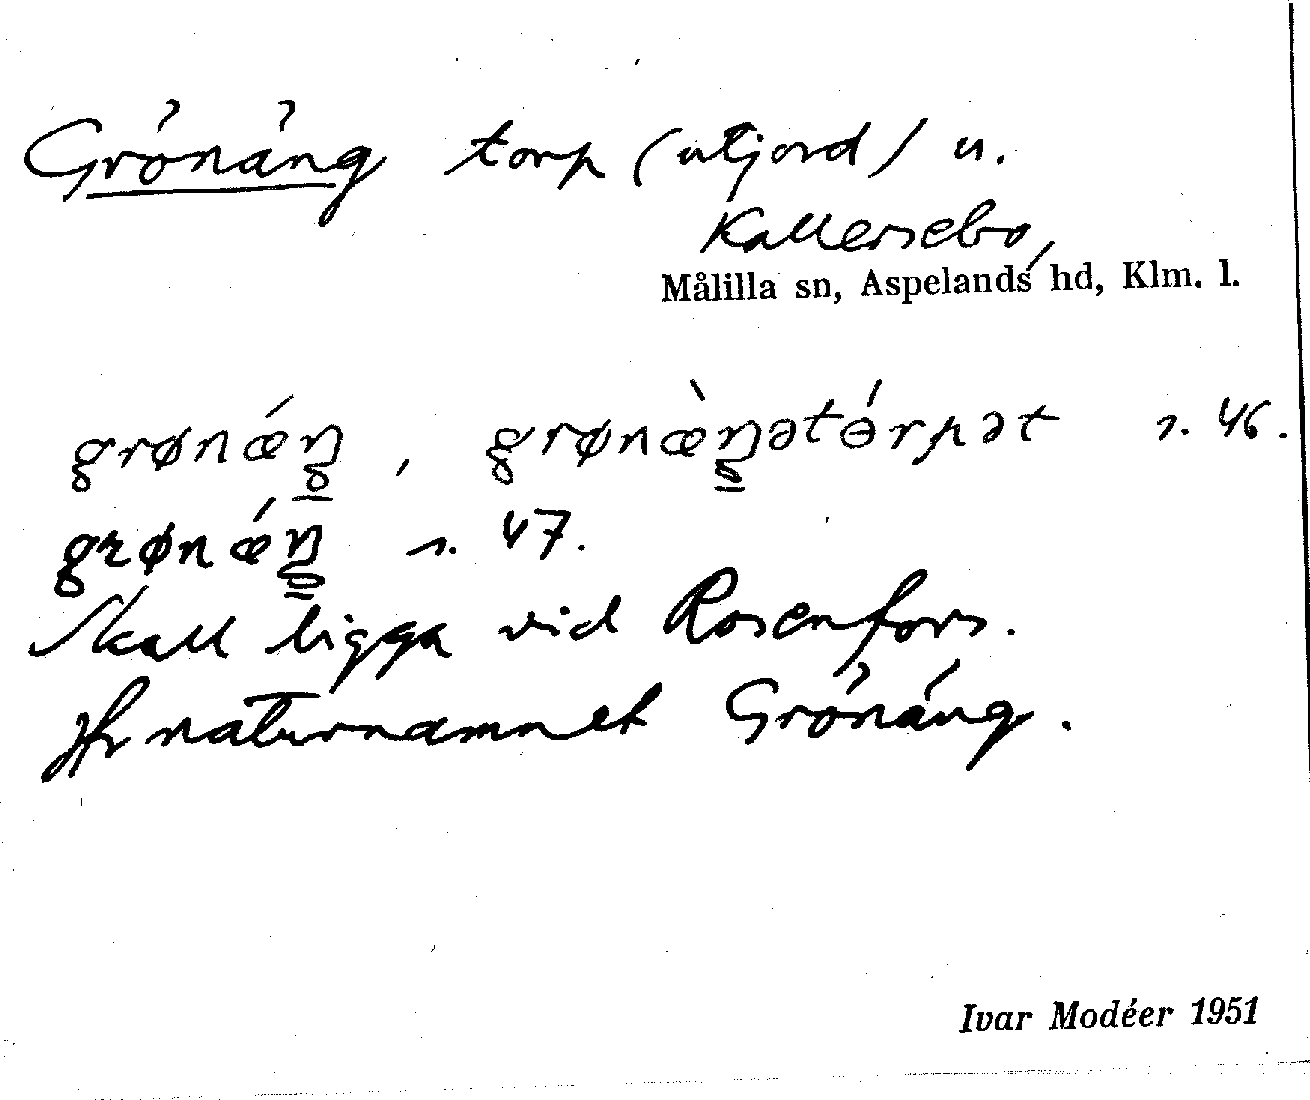 Grönäng torp (utjord) u.
Kallersebo,
Målilla sn, Aspelands hd, Klm. l.
grønǽŋ , grønæ̀ŋətɵ́rpət s. 46.
grønǽŋ s. 47.
Skall ligga vid Rosenfors.
Jfr naturnamnet Grönäng.
Ivar Modéer 1951